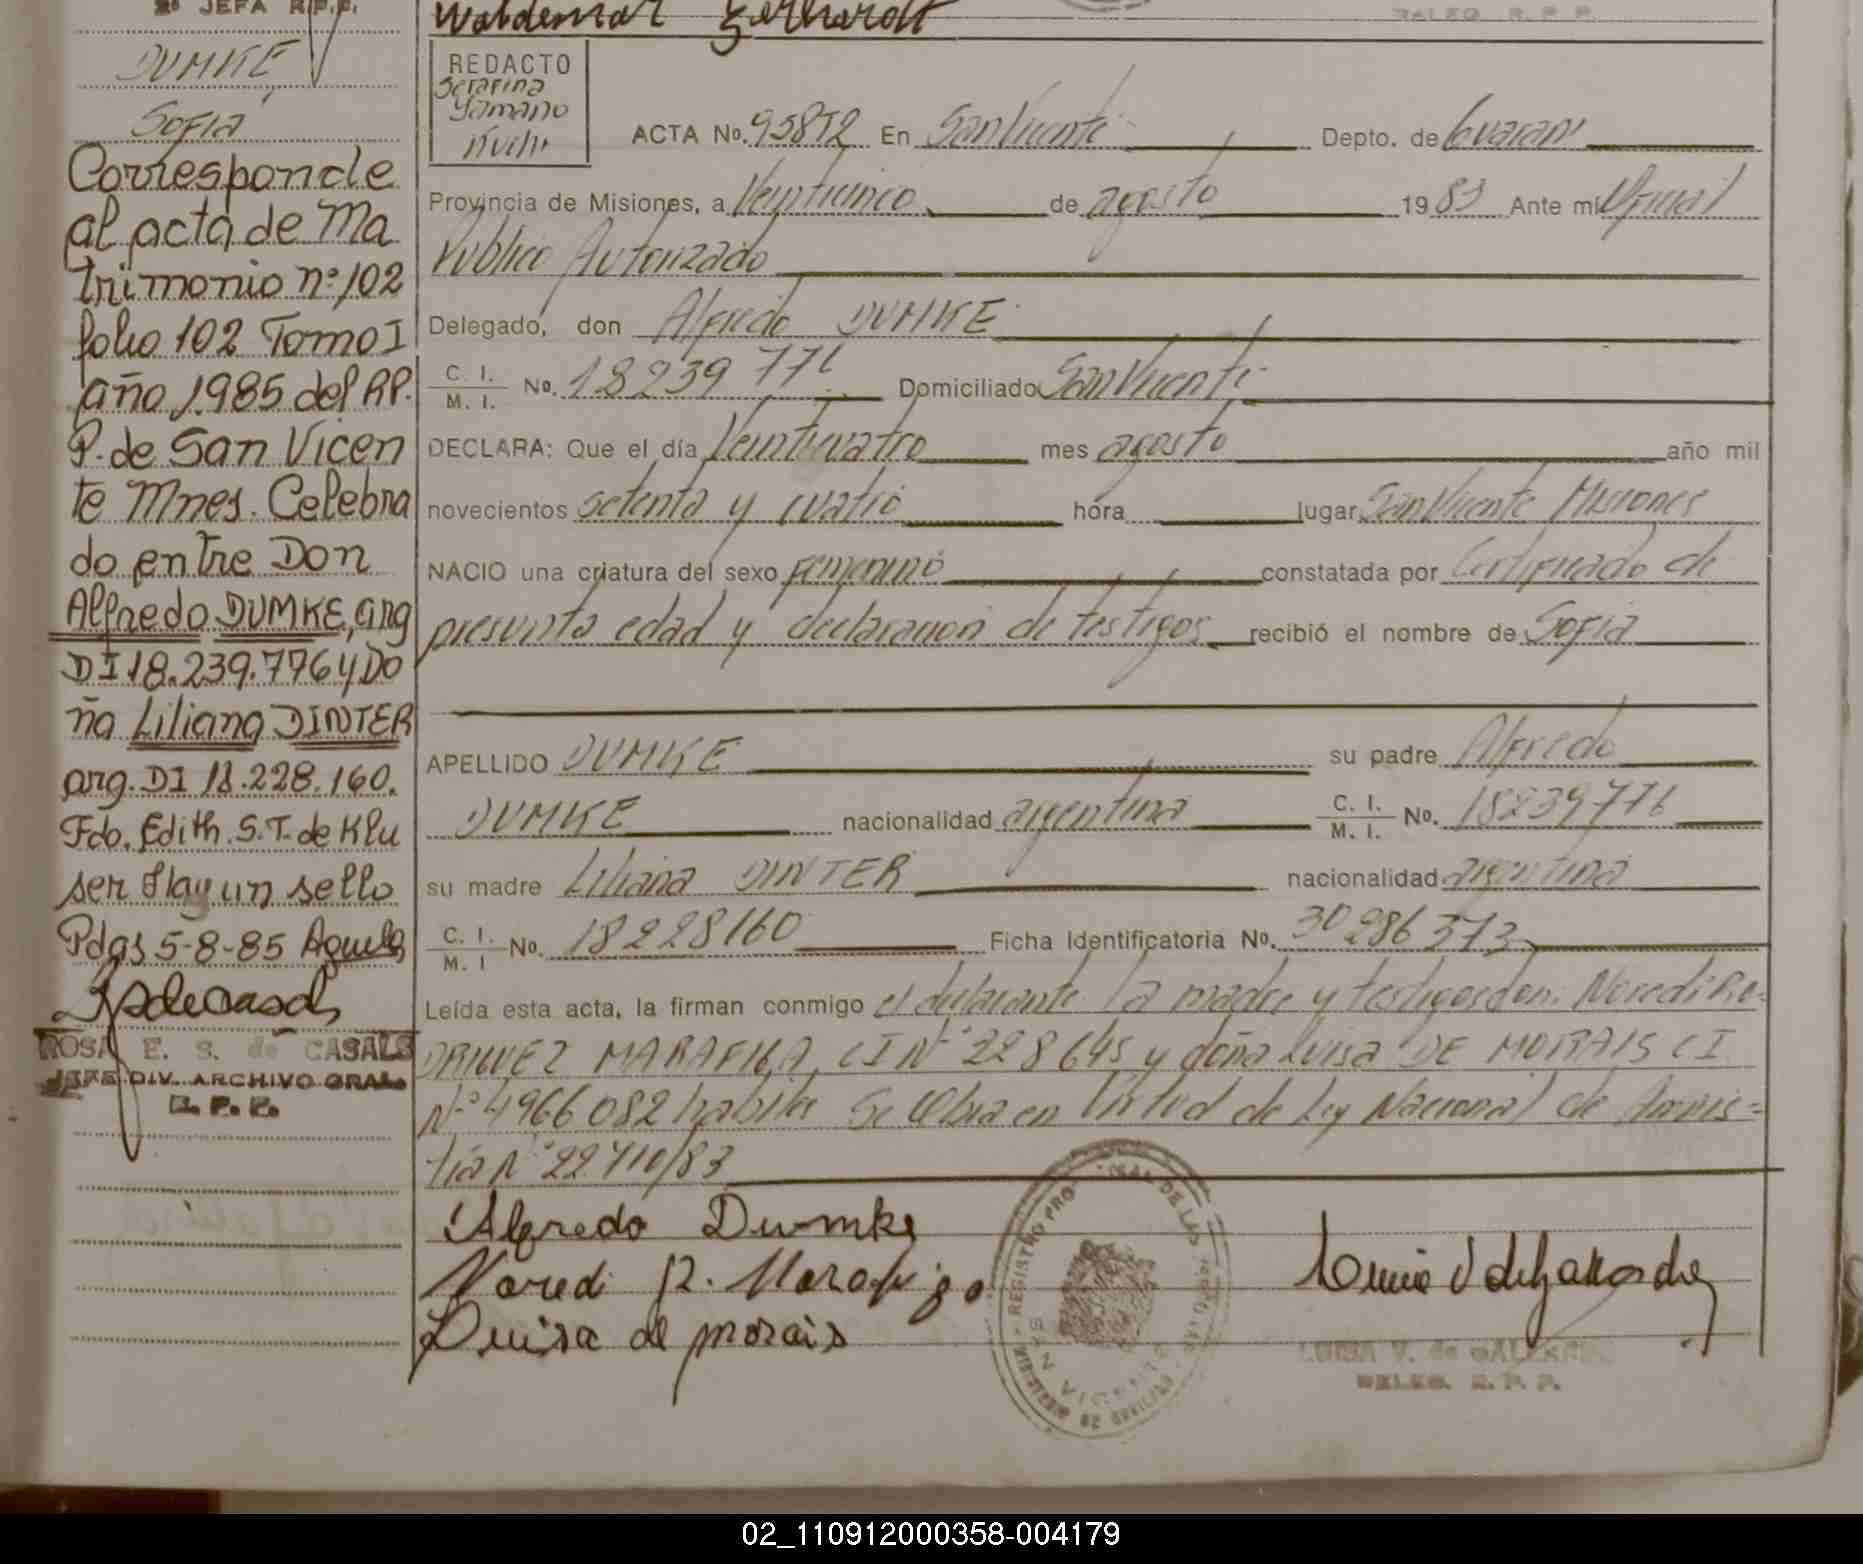 2º JEFA R.P.P.
DUMKE
Sofia
Corresponde
al acta de Ma
trimonio nº 102
folio 102 Tomo I
año 1985 del RP.
P. de San Vicen
te Mnes. Celebra
do entre Don
Alfredo DUMKE, arg
DI 18.239.776 y Do
ña Liliana DINTER
arg. DI 18.228.160.
Fdo. Edith. S.T. de Klu
ser Hay un sello
Pdas 5-8-85
ROSA E. S. de CASALS
JEFE DIV. ARCHIVO GRAL.
R. P. P.
Waldemar Gerhardt
DELEG. R. P. P.
REDACTO
Serafina
ACTA No. 958T2 En San Vicente Depto. de Guarani
Provincia de Misiones, a Veinticinco de agosto 1983 Ante mi Oficial
Publico Autorizado
Delegado, don Alfredo DUMKE
C. I.
M. I. No. 18239776 Domiciliado San Vicente
DECLARA: Que el día Veinticuatro mes agosto año mil
novecientos setenta y cuatro hora lugar San Vicente Misiones
NACIO una criatura del sexo femenino constatada por Certificado de
presunta edad y declaracion de testigos recibió el nombre de Sofia
APELLIDO DUMKE su padre Alfredo
DUMKE nacionalidad argentina C. I.
M. I. No. 18239776
su madre Liliana DINTER nacionalidad argentina
C. I.
M. I No. 18228160 Ficha Identificatoria No. 30286373
Leída esta acta, la firman conmigo el declarante la madre y testigos don. Noredi Ro-
DRIGUEZ MARAFIGA, CI Nº 228645 y doña Luisa DE MORAIS CI
Nº 4966082 habiles Se labra en Virtud de Ley Nacional de Amnis=
tia Nº 22410/83
Alfredo Dumke
Noredi R. Marafigo
Luisa de morais
LUISA V. de
DELEG. R. P. P.
02_110912000358-004179